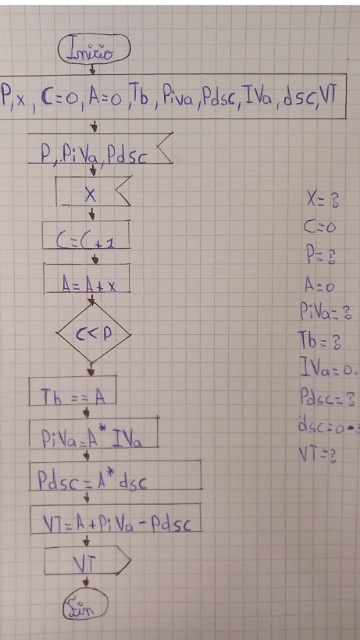 Inicio
P,x, C=0, A=0, Tb, Piva, Pdsc, IVa, dsc, VT
P, PiVa, Pdsc
X
C=C+1
A=A+x
C<P
Tb == A
PiVa=A* IVa
Pdsc=A* dsc
VT=A+PiVa-Pdsc
VT
Fin
X=?
C=0
P=?
A=0
PiVa=?
Tb=?
IVa=0.
Pdsc=?
dsc=0.
VT=?